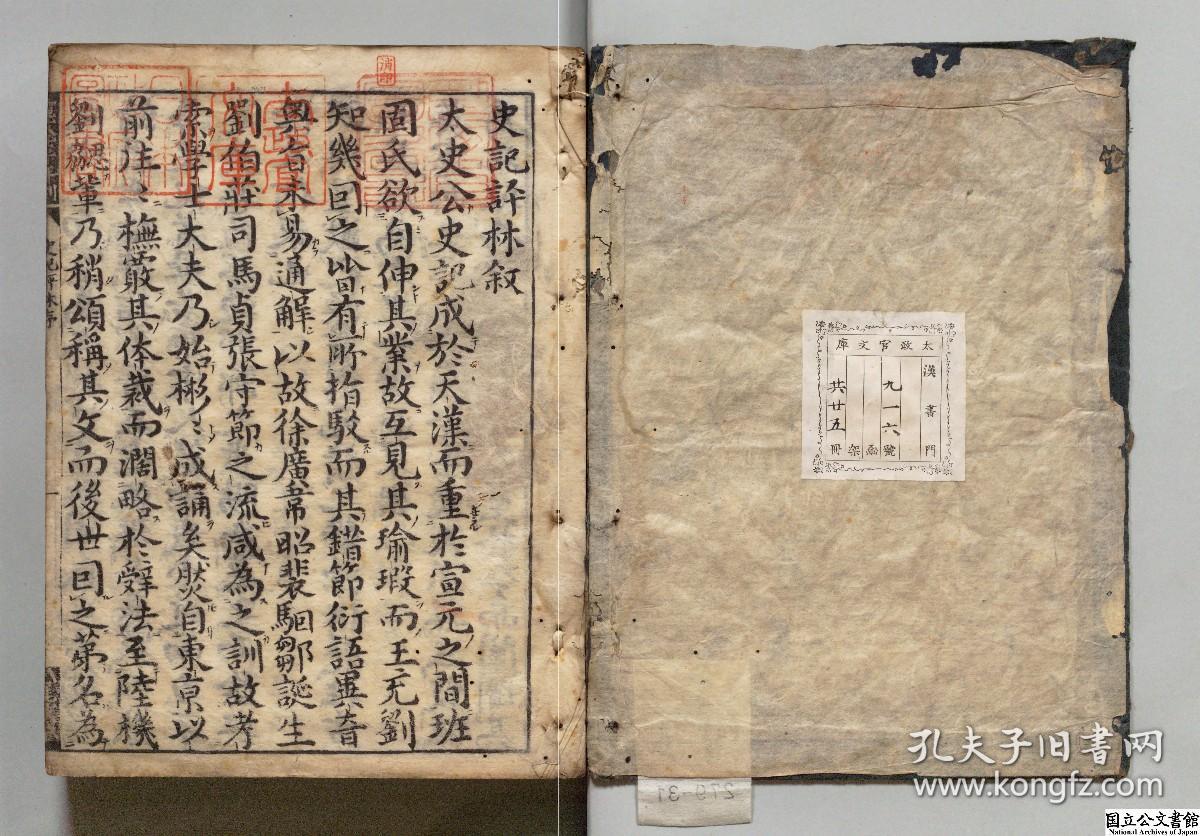 史記評林叙
太史公史記成於天漢而重於宣元之間班
固氏欲自伸其業故互見其瑜瑕而王充劉
知幾回之皆有所指駁而其錯節衍語異音
奧旨未易通解以故徐廣韋昭裴駰鄒誕生
劉伯莊司馬貞張守節之流咸為之訓故考
索學士大夫乃始彬〻成誦矣然自東京以
前往〻橅嚴其体裁而濶略於辭法至陸機
劉勰輩乃稍頌稱其文而後世回之第名為
消印
太政官文庫
漢書門
九一六號
函
架
共廿五冊
279-31
孔夫子旧书网
www.kongfz.com
国立公文書館
National Archives of Japan